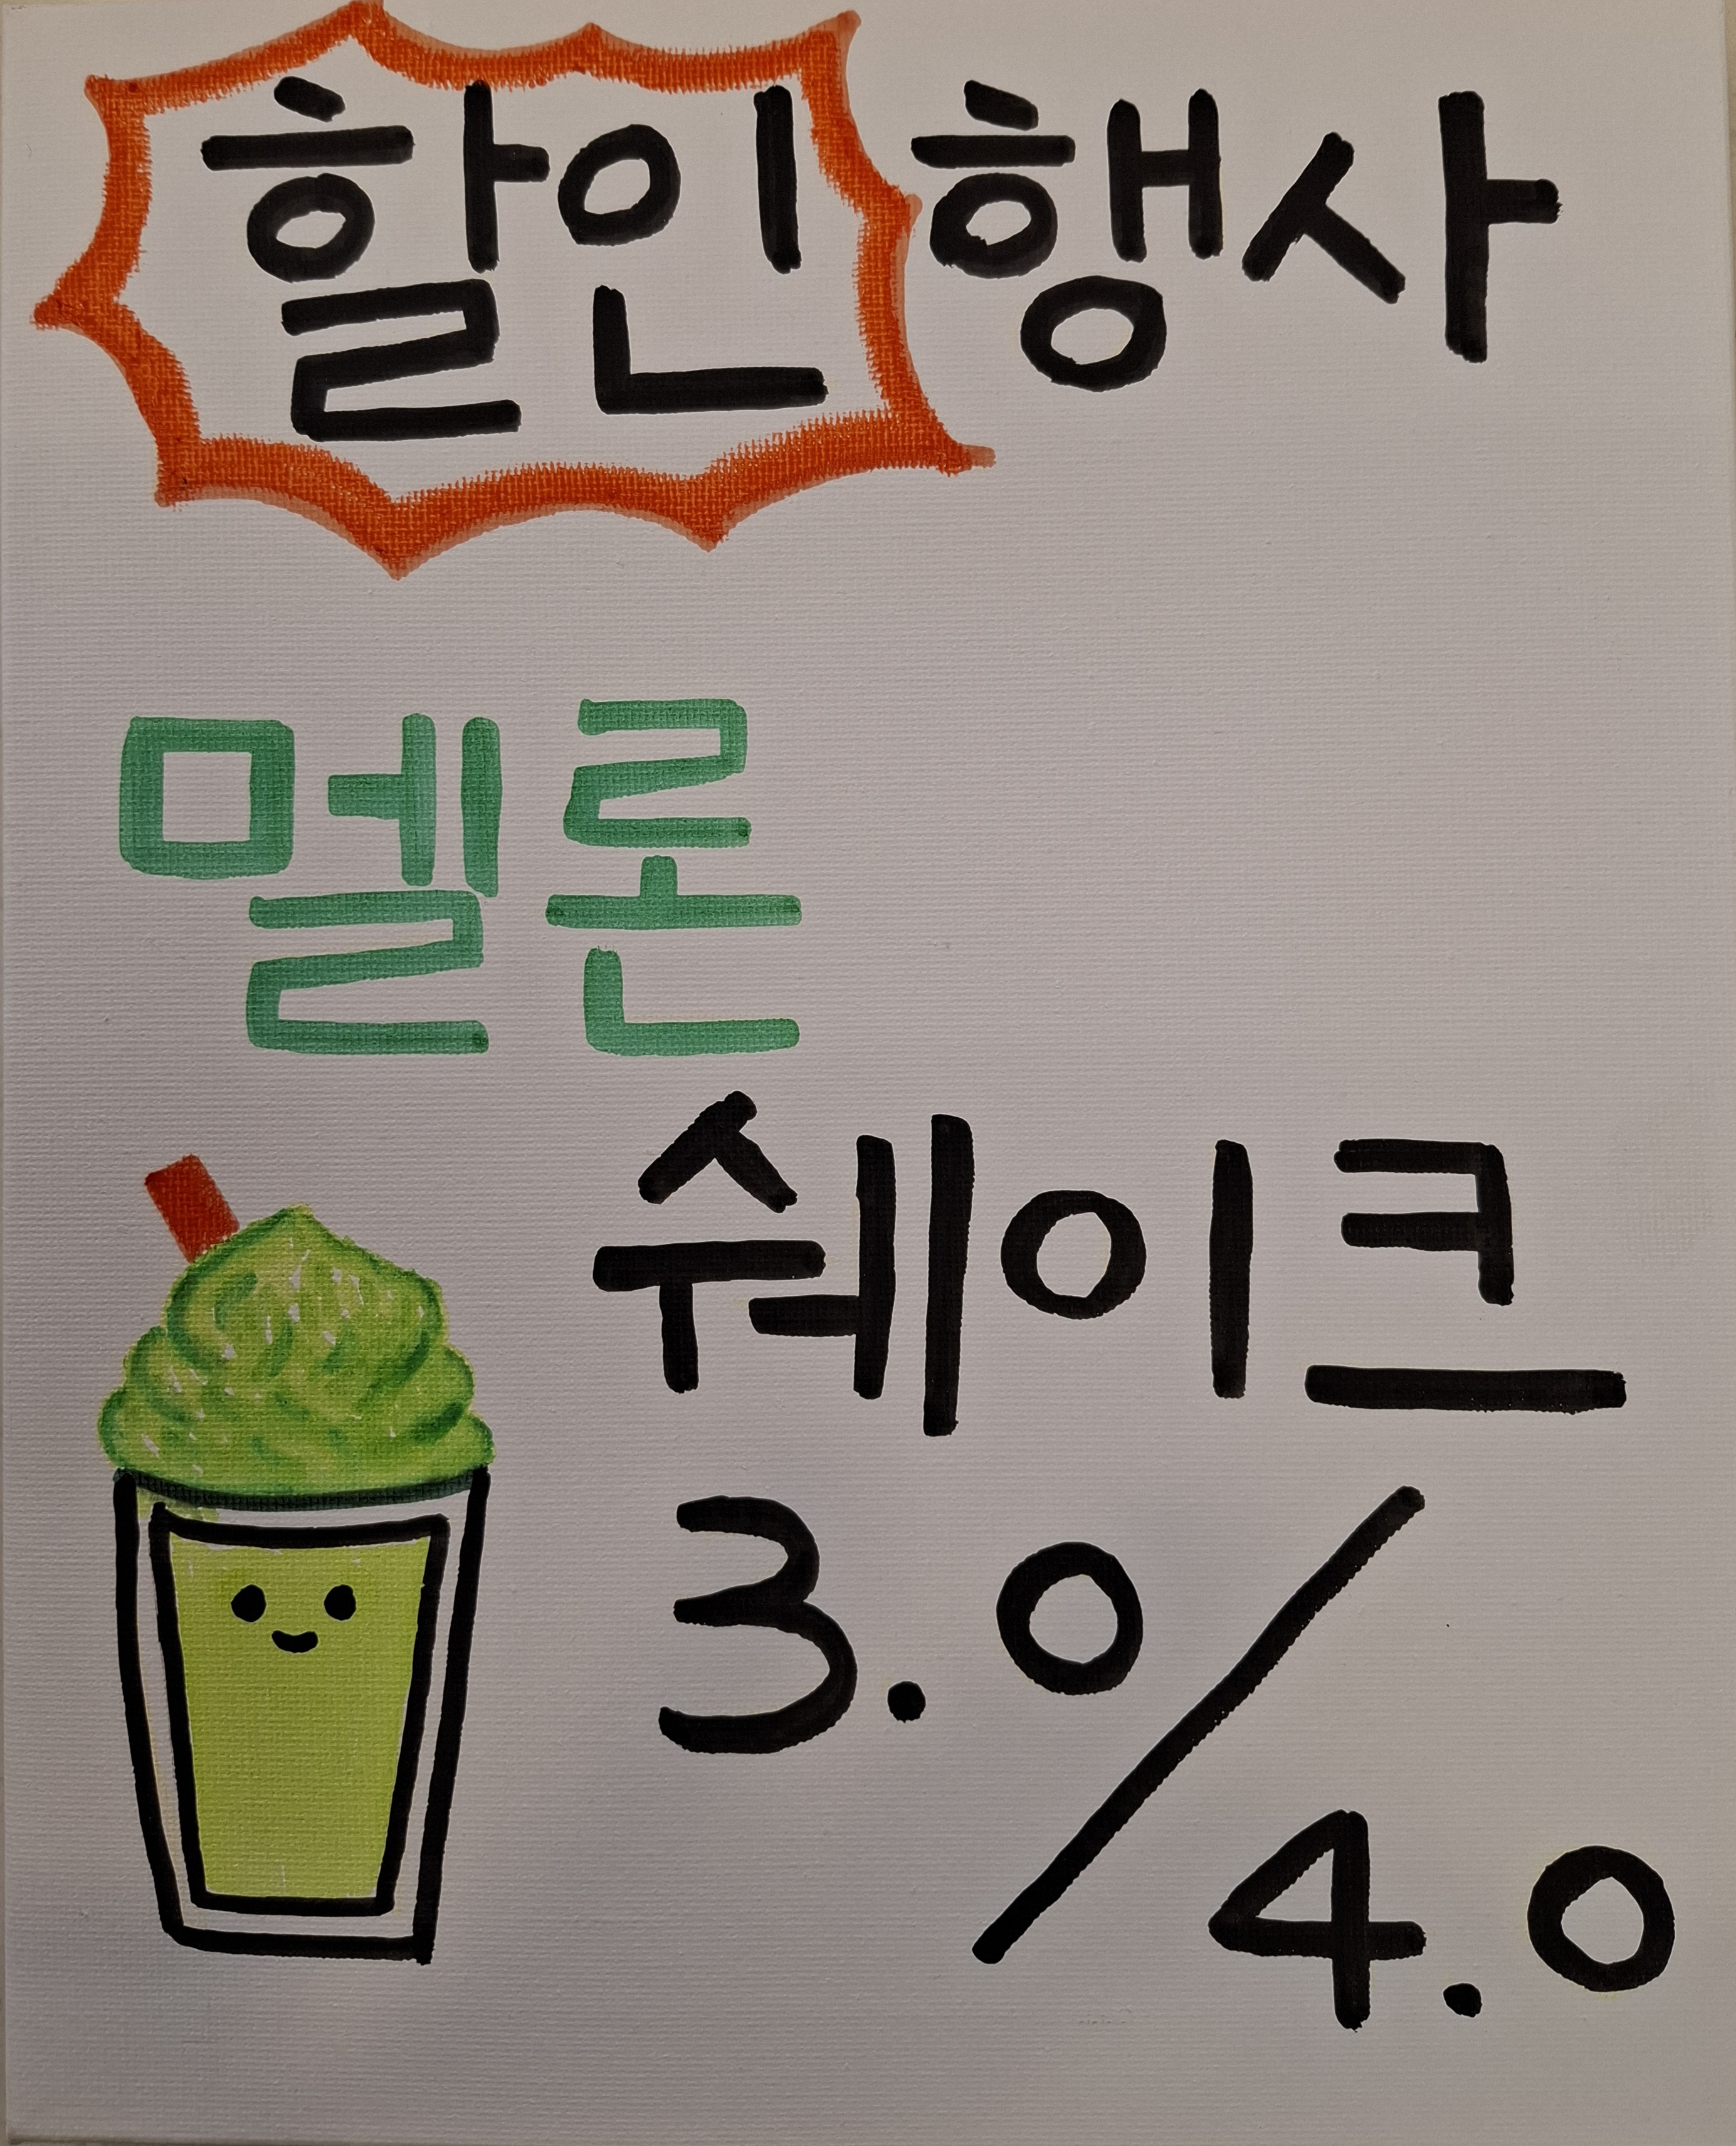 할인 행사
멜론
쉐이크
3.0/4.0